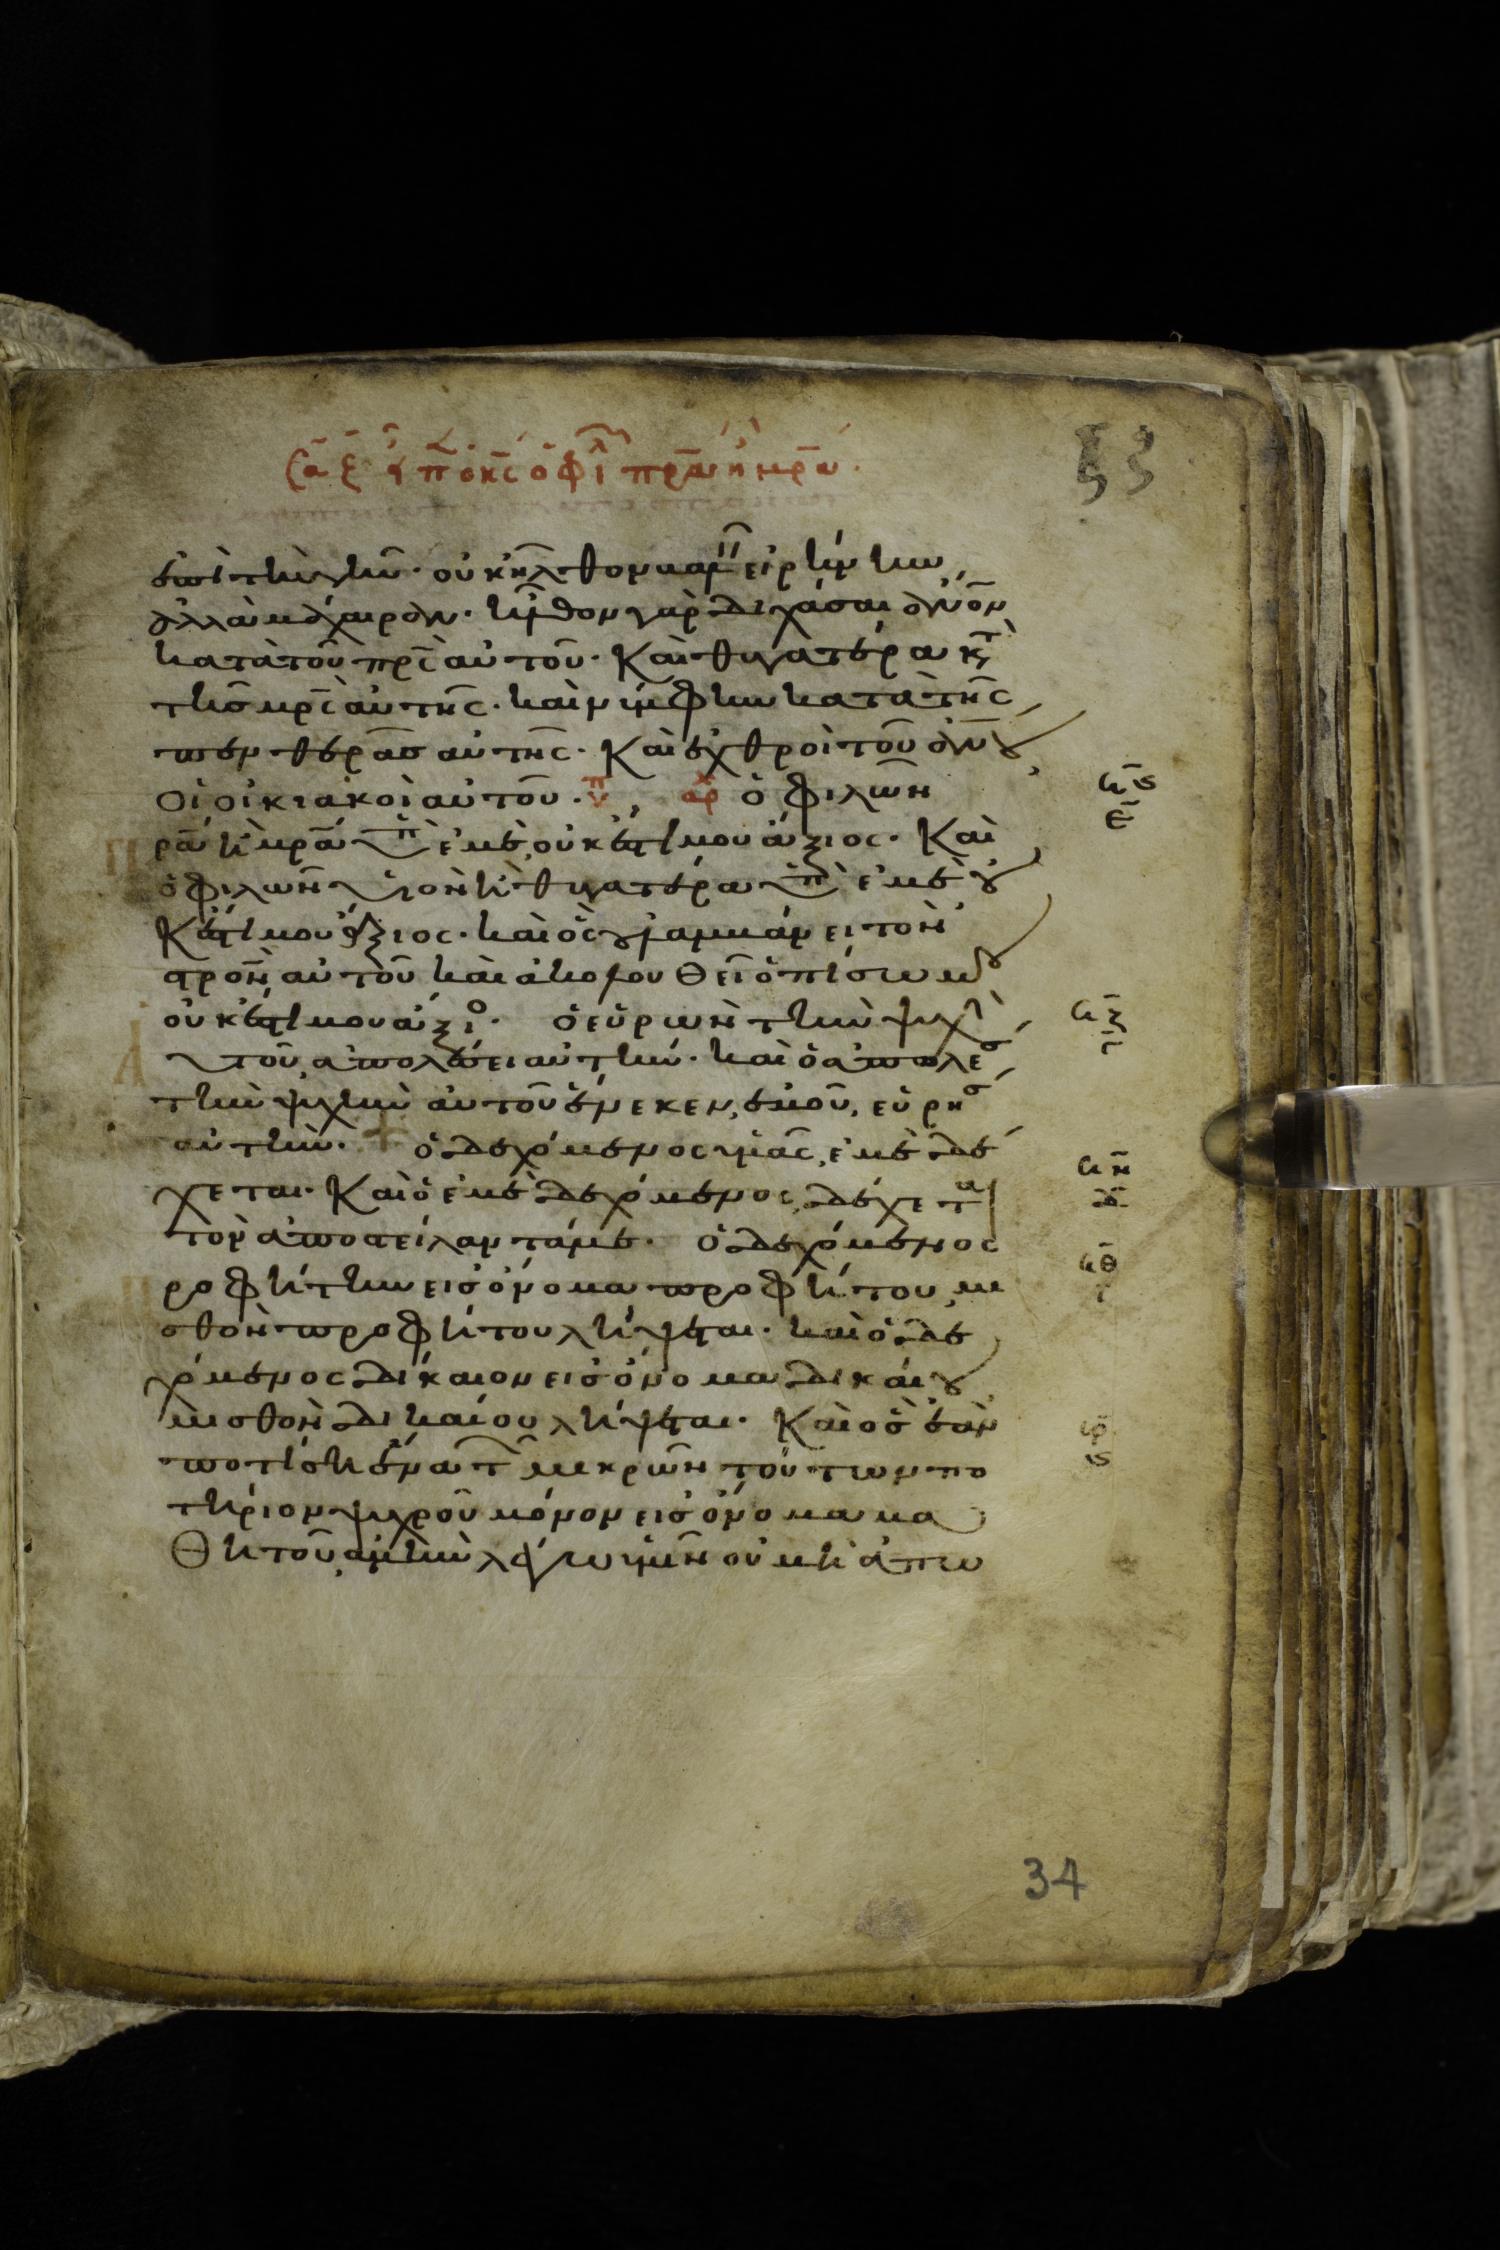 ἐπὶ τὴν γῆν· οὐκ ἦλθον βαλεῖν εἰρήνην
ἀλλὰ μάχαιραν· ἦλθον γὰρ διχάσαι ἄνον
κατὰ τοῦ πρς αὐτοῦ· Καὶ θυγατέρα κτ
τῆς μρς αὐτῆς· καὶ νύμφην κατὰ τῆς
πενθερᾶς αὐτῆς· Καὶ ἐχθροὶ τοῦ ἀνου
οἱ οἰκιακοὶ αὐτοῦ· ἀρχ ὁ φιλῶν
πρα ἢ μρα ὑπὲρ ἐμὲ, οὐκ ἔστι μου ἄξιος· Καὶ
ὁ φιλῶν υἱὸν ἢ θυγατέρα ὑπὲρ ἐμὲ οὐ
Κ ἔστι μου ἄξιος· καὶ ὃς οὐ λαμβάνει τὸν
στρον αὐτοῦ καὶ ἀκολουθεῖ ὀπίσω μου
οὐκ ἔστι μου ἄξιος· ὁ εὑρὼν τὴν ψυχὴν
αὐτοῦ, ἀπολέσει αὐτήν· καὶ ὁ ἀπολέσ
τὴν ψυχὴν αὐτοῦ ἕνεκεν ἐμοῦ, εὑρήσ
αὐτήν· ὁ δεχόμενος ὑμᾶς, ἐμὲ δέ
χεται· Καὶ ὁ ἐμὲ δεχόμενος, δέχεται
τὸν ἀποστείλαντά με· ὁ δεχόμενος
ροφήτην εἰς ὄνομα προφήτου, μι
σθὸν προφήτου λήψεται· καὶ ὁ δε
χόμενος δίκαιον εἰς ὄνομα δικαίου
μισθὸν δικαίου λήψεται· Καὶ ὃς ἐὰν
ποτίσῃ ἕνα τῶν μικρῶν τούτων πο
τήριον ψυχροῦ μόνον εἰς ὄνομα μα
θητοῦ, ἀμὴν λέγω ὑμῖν οὐ μὴ ἀπω
34